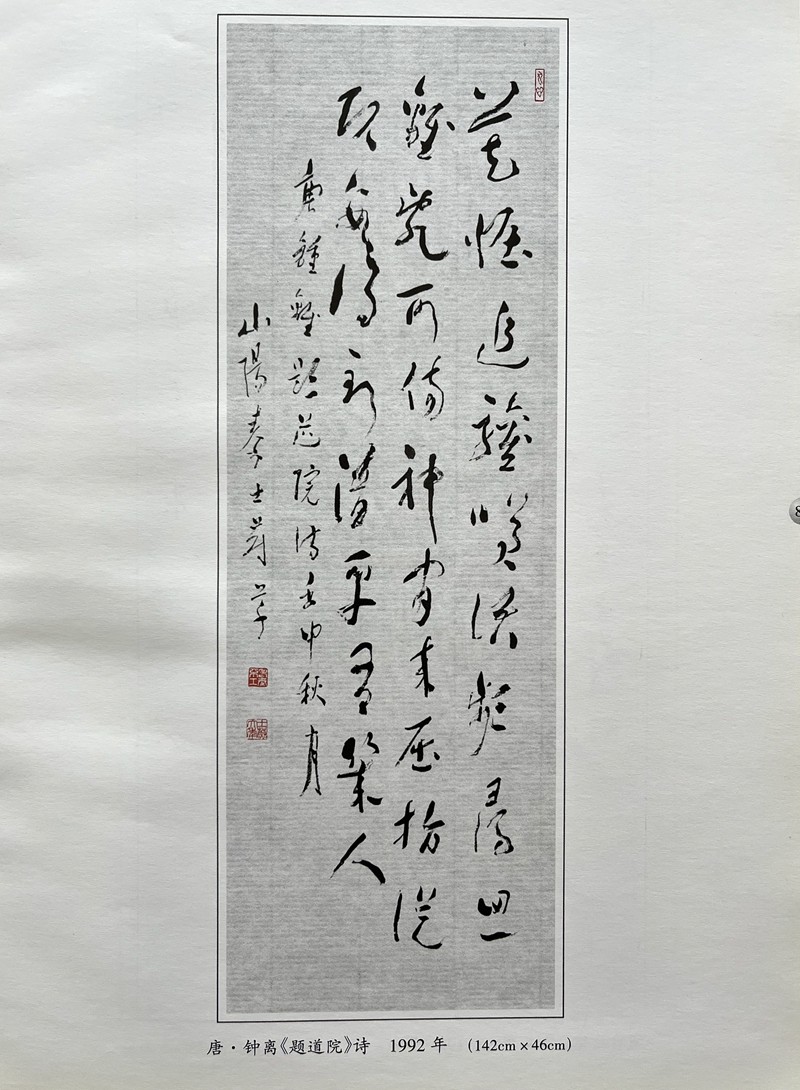 莫懕追驩笑語頻尋思
離亂可傷神閒來屈指從
頭數得到清平有幾人
唐鍾離題道院詩壬申秋月
山陽秦士蔚草
唐·钟离《题道院》诗 1992年 (142cm×46cm)